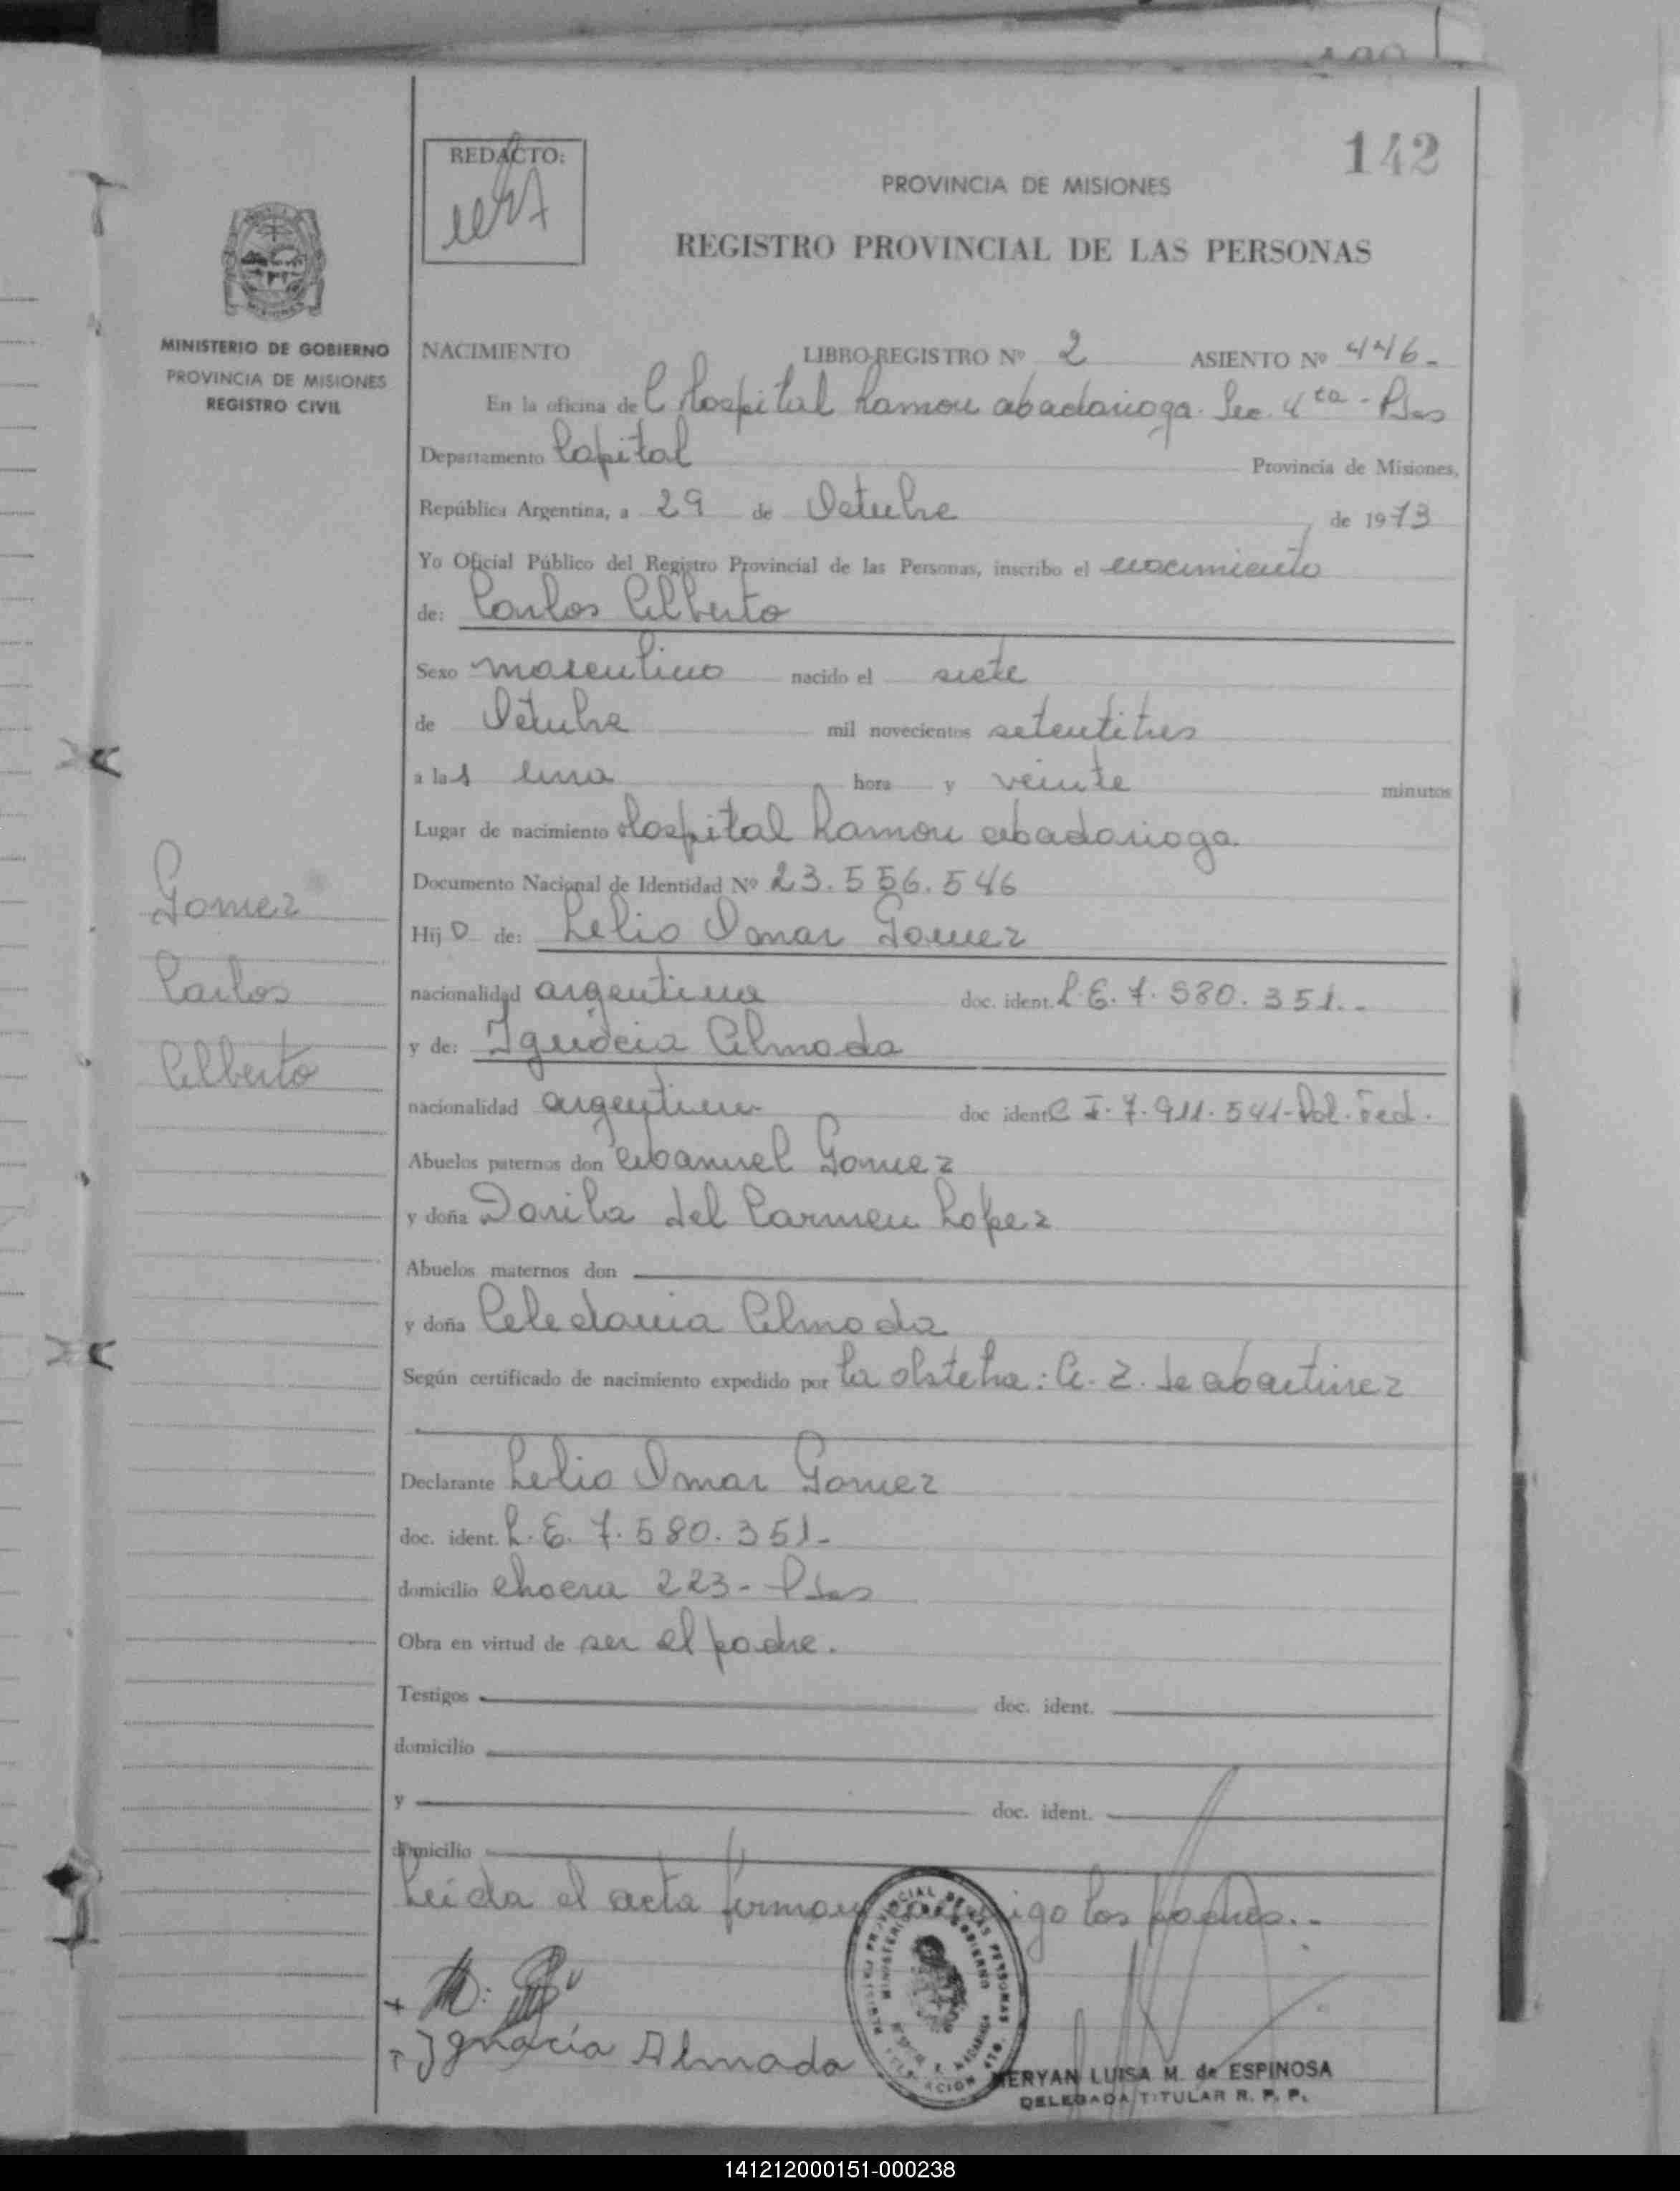 142
REDACTO:
PROVINCIA DE MISIONES
REGISTRO PROVINCIAL DE LAS PERSONAS
MINISTERIO DE GOBIERNO
PROVINCIA DE MISIONES
REGISTRO CIVIL
NACIMIENTO LIBRO REGISTRO Nº 2 ASIENTO Nº 446.-
En la oficina de Hospital Ramon Madariaga. Sec. 4ta - Pdas
Departamento Capital Provincia de Misiones,
República Argentina, a 29 de Octubre de 1973
Yo Oficial Público del Registro Provincial de las Personas, inscribo el nacimiento
de: Carlos Alberto
Sexo masculino nacido el siete
de Octubre mil novecientos setentitres
a las una hora y veinte minutos
Lugar de nacimiento Hospital Ramon Madariaga.
Documento Nacional de Identidad Nº 23.556.546
Hijo de: Lelio Omar Gomez
nacionalidad argentina doc. ident. L.E. 7.580.351.-
y de: Ignacia Almada
nacionalidad argentina doc ident C I. 7.911.541-Pol. Fed.
Abuelos paternos don Manuel Gomez
y doña Dorila del Carmen Lopez
Abuelos maternos don
y doña Celedonia Almada
Según certificado de nacimiento expedido por la obstetra: A. Z. de Martinez
Declarante Lelio Omar Gomez
doc. ident. L.E. 7.580.351-
domicilio 223- Pdas
Obra en virtud de ser el padre.
Testigos doc. ident.
domicilio
y doc. ident.
domicilio
Leida el acta firman conmigo los padres..-
Gomez
Carlos
Alberto
Ignacia Almada
REGISTRO PROVINCIAL DE LAS PERSONAS
MINISTERIO DE GOBIERNO
MERYAN LUISA M. de ESPINOSA
DELEGADA TITULAR R. P. P.
141212000151-000238